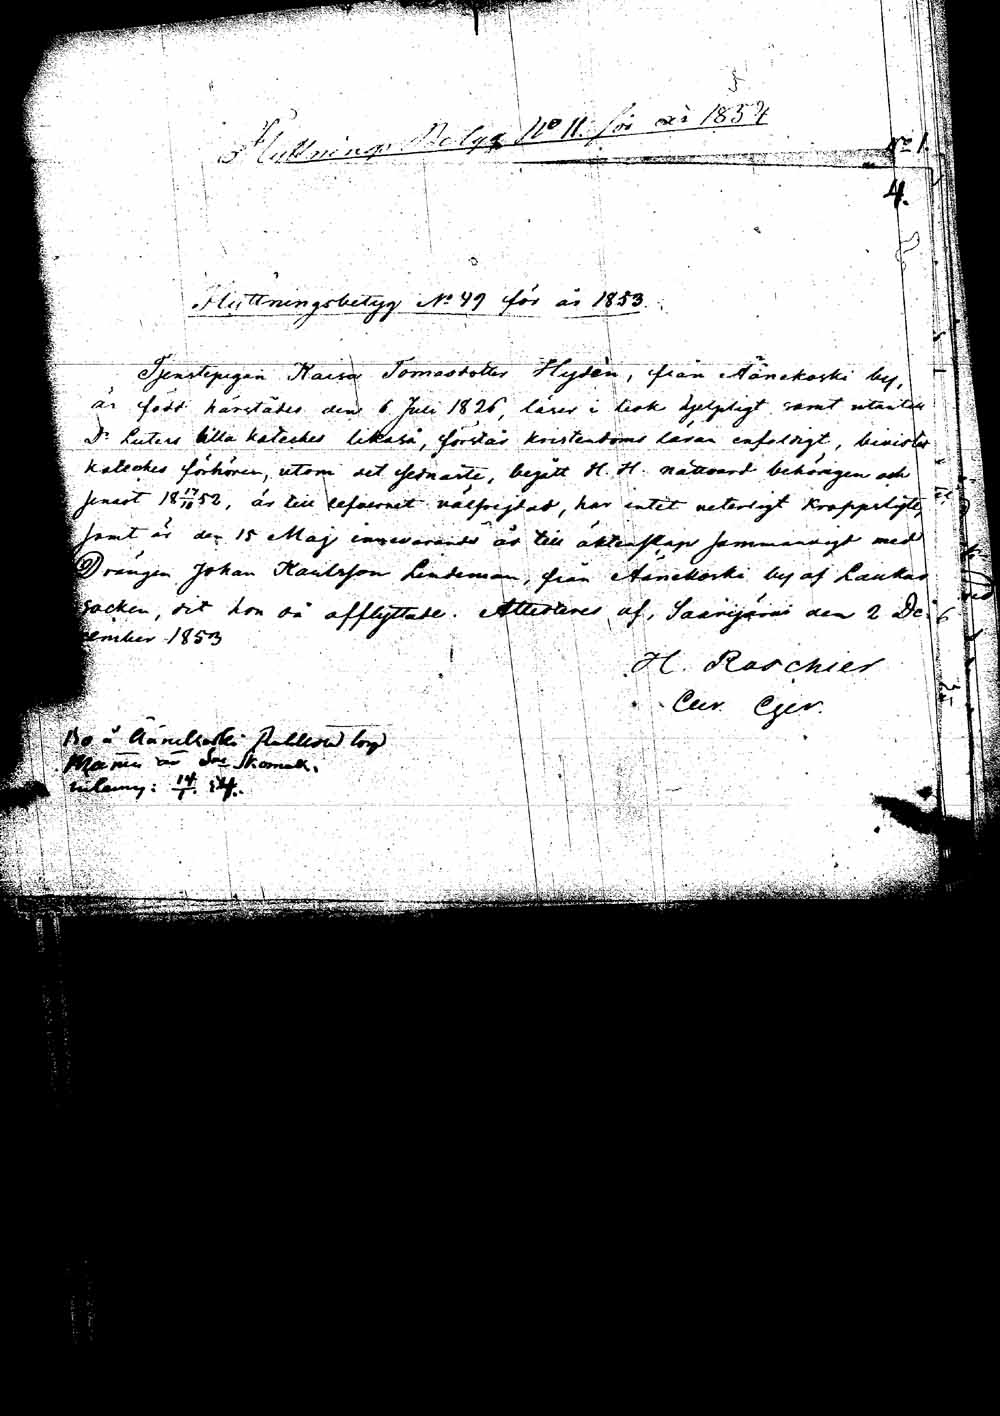 Flyttnings Betyg No 11. för år 1854
No 1.
4.
Flyttningsbetyg No 49 för år 1853.
Tjenstepigan Kaisa Tomasdotter Hydèn, från Äänekoski by,
är född härstädes den 6 Juli 1826, läser i bok hjelpligt samt utantill
Dr Luters lilla kateches likaså, förstår kristendoms läran enfaldigt, bivistat
kateches förhören, utom det sednaste, begått H. H. nattvard behörigen och
senast 18 17/10 52, är till lefvernet välfrejdad, har intet veterligt kroppslyte,
samt är den 15 Maj innevarande år till äktenskap sammanvigd med
Drängen Johan Karlsson Lindeman, från Äänekoski by af Laukas
socken, dit hon då afflyttade. Attesteras af, Saarijärvi den 2 De-
cember 1853
H. Roschier
Bo å Äänekoski
14/1. 54.